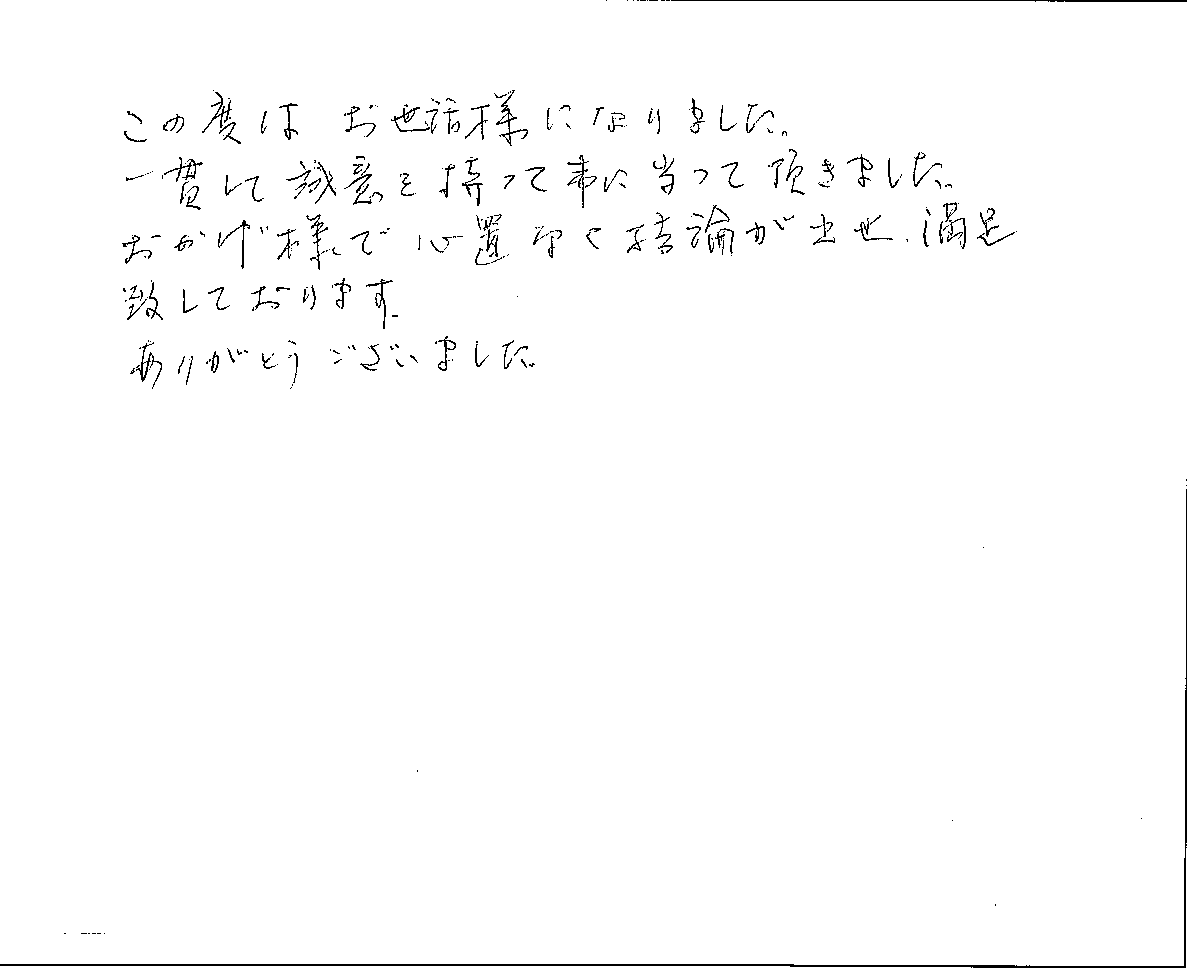 この度は お世話様になりました。
一貫して 誠意を持って事に当って頂きました。
おかげ様で 心置なく結論が出せ、満足
致しております。
ありがとうございました。